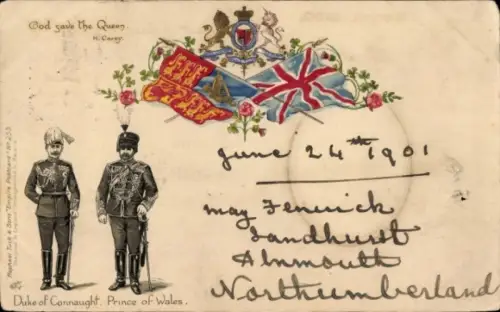 God save the Queen.
H. Carey.
June 24th 1901
May Fenwick
Sandhurst
Alnmouth
Northumberland
Duke of Connaught. Prince of Wales.
Raphael Tuck & Sons "Empire" Postcard No 253